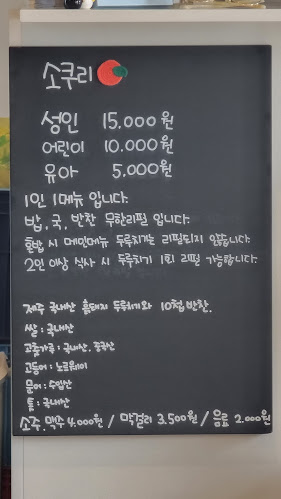 소쿠리
성인 15.000원
어린이 10.000원
유아 5.000원
1인 1메뉴 입니다.
밥, 국, 반찬 무한리필 입니다.
혼밥 시 메인메뉴 두루치기는 리필되지 않습니다.
2인 이상 식사 시 두루치기 1회 리필 가능합니다.
제주 국내산 흑돼지 두루치기와 10첩 반찬.
쌀 : 국내산
고춧가루 : 국내산. 중국산
고등어 : 노르웨이
문어 : 수입산
톳 : 국내산
소주. 맥주 4.000원 / 막걸리 3.500원 / 음료 2.000원